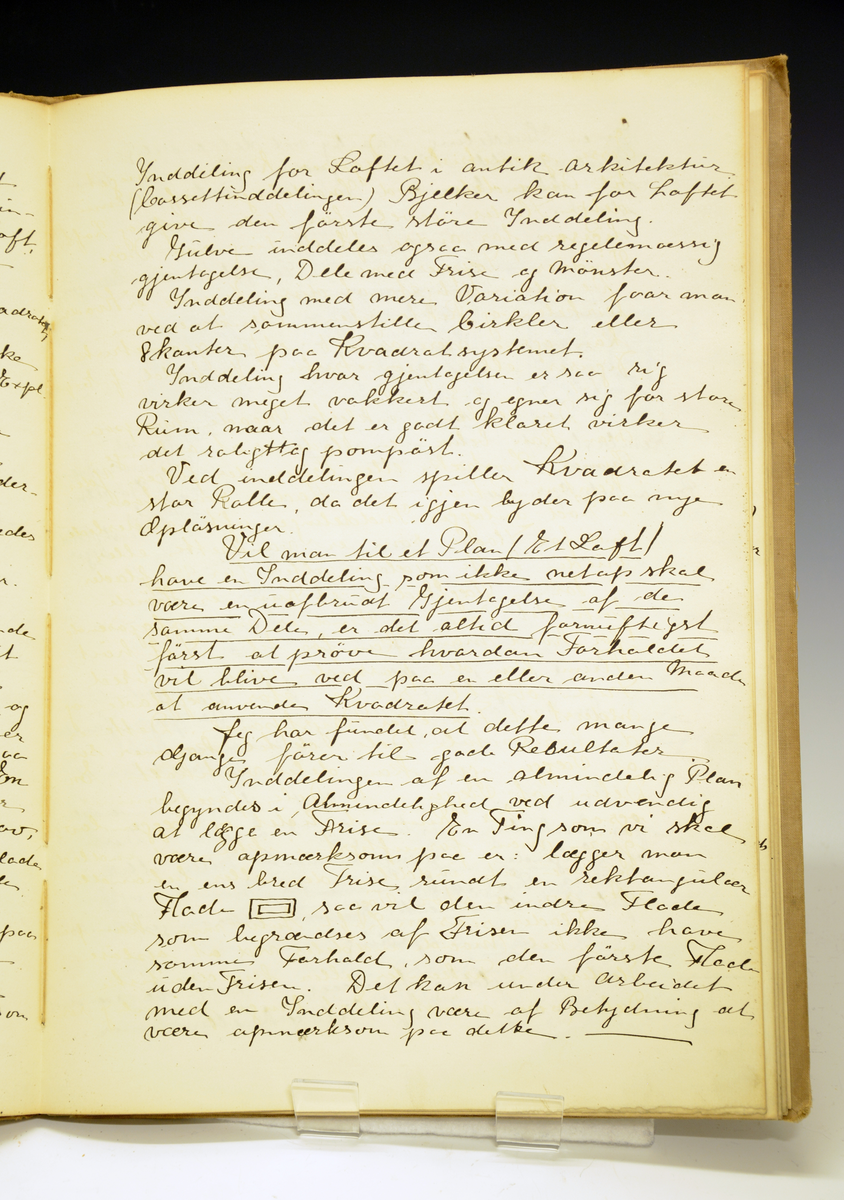 Inddeling for Loftet i antik arkitektur
(Cassettinddelingen) Bjelker kan for Loftet
give den förste störe Inddeling.
Gulve inddeles ogsaa med regelmæssig
gjentagelse, Dele med Frise og Mönster.
Inddeling med mere Variation faar man
ved at sammenstille Cirkler eller
8kanter paa Kvadratsystemet.
Inddeling hvor gjentagelsen er saa rig
virker meget vakkert og egner sig for store
Rum, naar det er godt klaret virker
det pompöst.
Ved inddelingen spiller Kvadratet en
stor Rolle, da det igjen byder paa nye
Oplösninger.
Vil man til et Plan (Et Loft)
have en Inddeling som ikke netop skal
være en uafbrudt Gjentagelse af de
samme Dele, er det altid fornuftigst
först at pröve hvordan Forholdet
vil blive ved paa en eller anden Maade
at anvende Kvadratet.
Jeg har fundet, at dette mange
Gange förer til gode Resultater
Inddelingen af en almindelig Plan
begyndes i Almindelighed ved udvendig
at lægge en Frise. En Ting som vi skal
være opmærksom paa er: lægger man
en ens bred Frise rundt en rektangulær
Flade, saa vil den indre Flade
som begrændses af Frisen ikke have
samme Forhold, som den förste Flade
uden Frisen. Det kan under arbeidet
med en Inddeling være af Betydning at
være opmærksom paa dette.